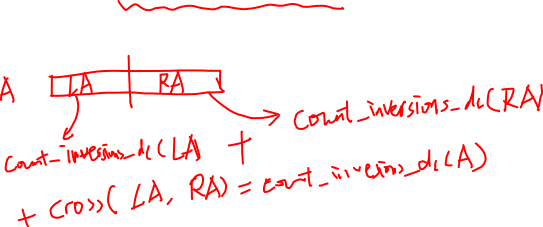 A LA RA
count_inversions_dc(RA)
count_inversions_dc(LA) +
+ cross(LA, RA) = count_inversions_dc(A)